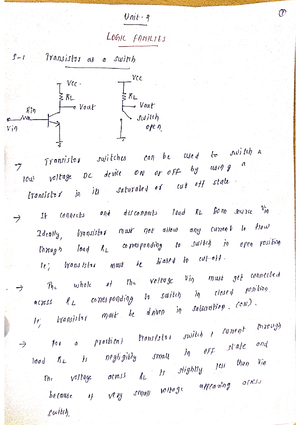 Unit - 9
LOGIC FAMILIES
5-1 Transistor as a switch
Vcc Vcc
RL RL
Vout Vout
Rin switch
Vin open
→ Transistor switches can be used to switch a
low voltage DC device on or off by using a
transistor in its saturated or cut off state.
→ It connects and disconnects load RL from source Vin
Ideally, transistor must not allow any current to flow
through load RL corresponding to switch in open position
ie; transistor must be biased to cut-off.
- The whole of the voltage Vin must get connected
across RL corresponding to switch in closed position
ie, transistor must be driven in saturation. (ON).
→ For a practical transistor switch, current through
load RL is negligibly small in off state and
the voltage across RL is slightly less than Vin
because of very small voltage appearing across
switch.